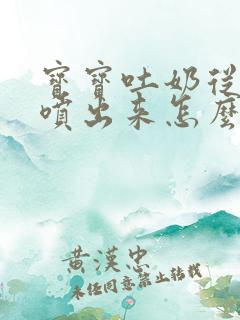 寶寶吐奶從
噴出來怎麼
黃漢忠
未經同意禁止轉載